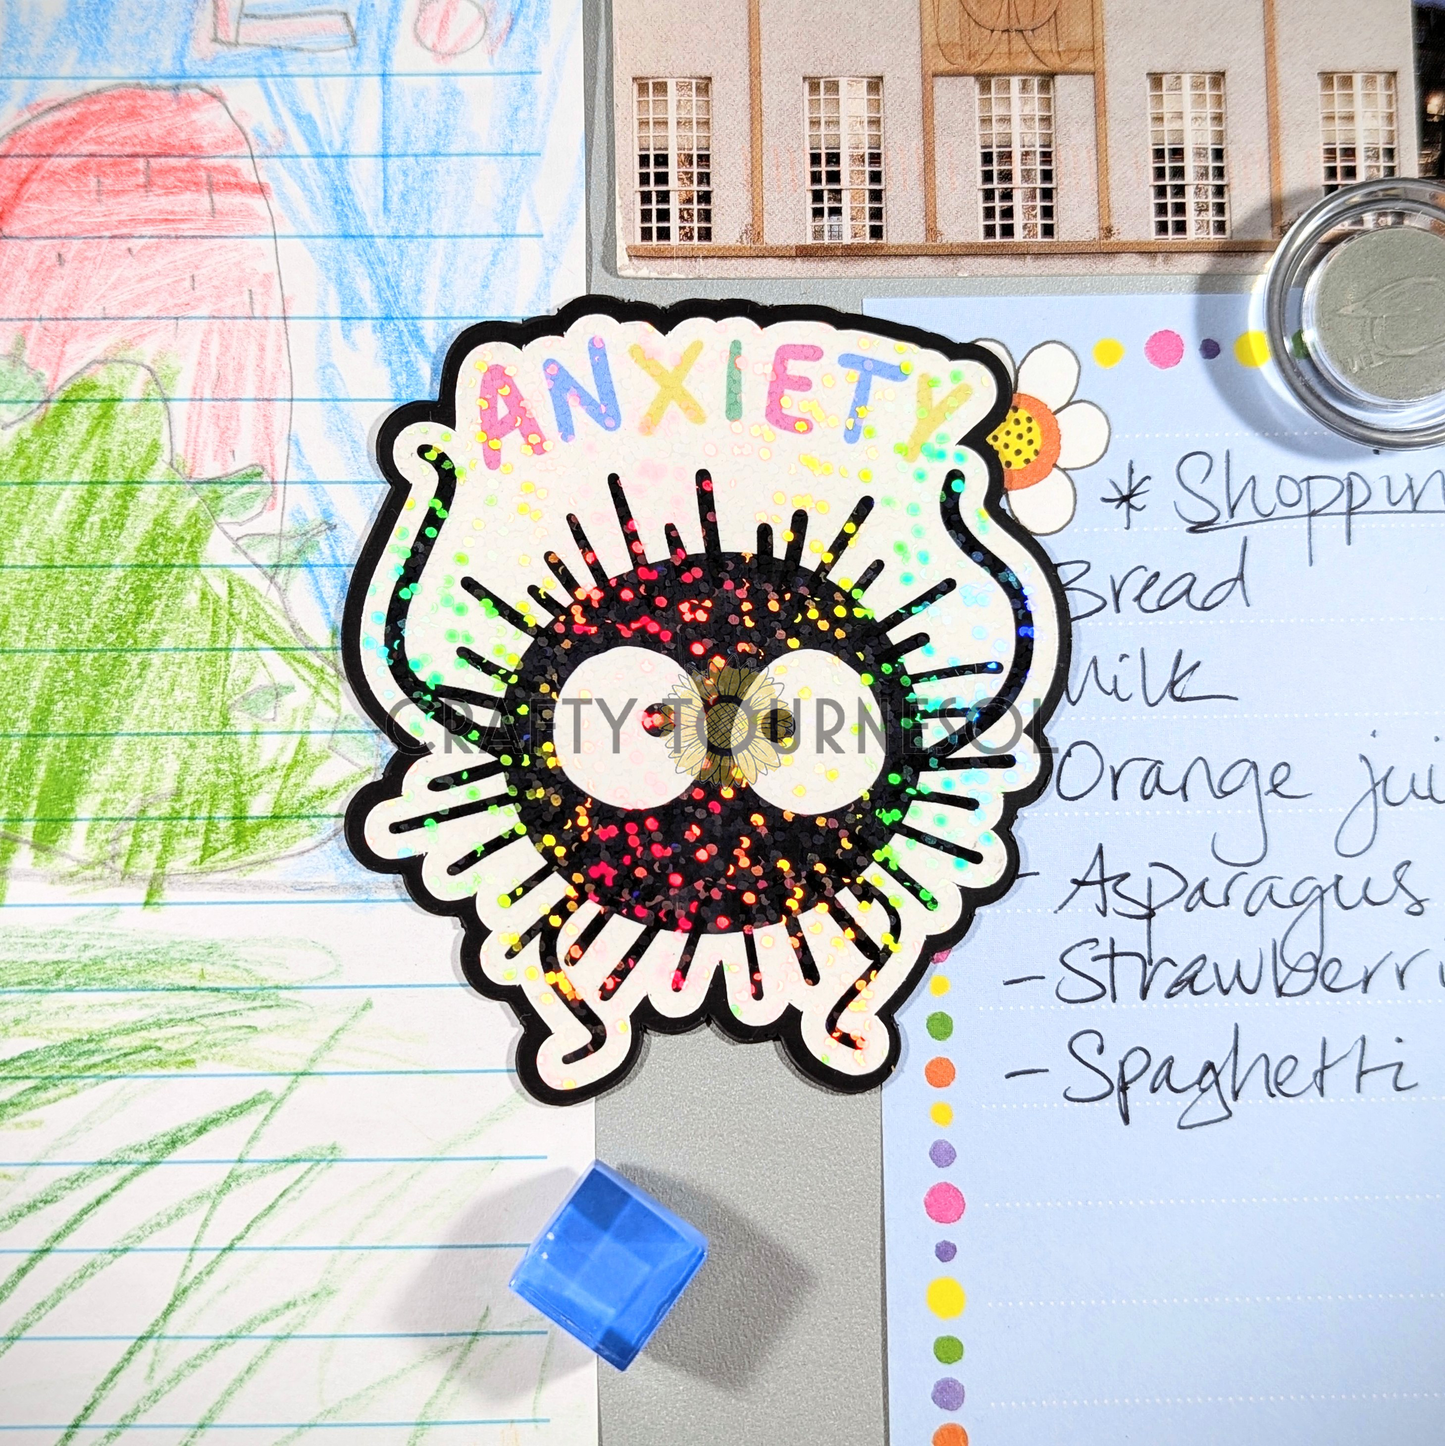 ANXIETY
CRAFTY TOURNESOL
* Shoppin
Bread
Milk
Orange jui
- Asparagus
- Strawberri
- Spaghetti